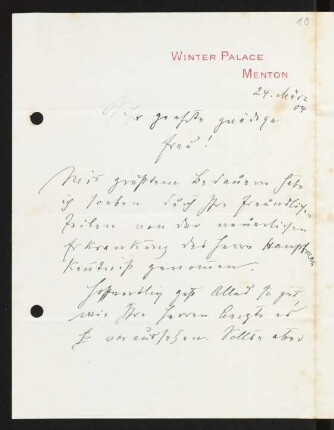 10
WINTER PALACE
MENTON
24. März
04
Sehr geehrte gnädige
Frau!
Mit größtem Bedauern habe
ich soeben durch Ihre freundlichen
Zeilen von der neuerlichen
Erkrankung des Herrn Hauptmann
Kenntniß genommen.
Hoffentlich geht Alles so gut,
wie Ihre Herren Ärzte es
voraussehen. Sollte aber